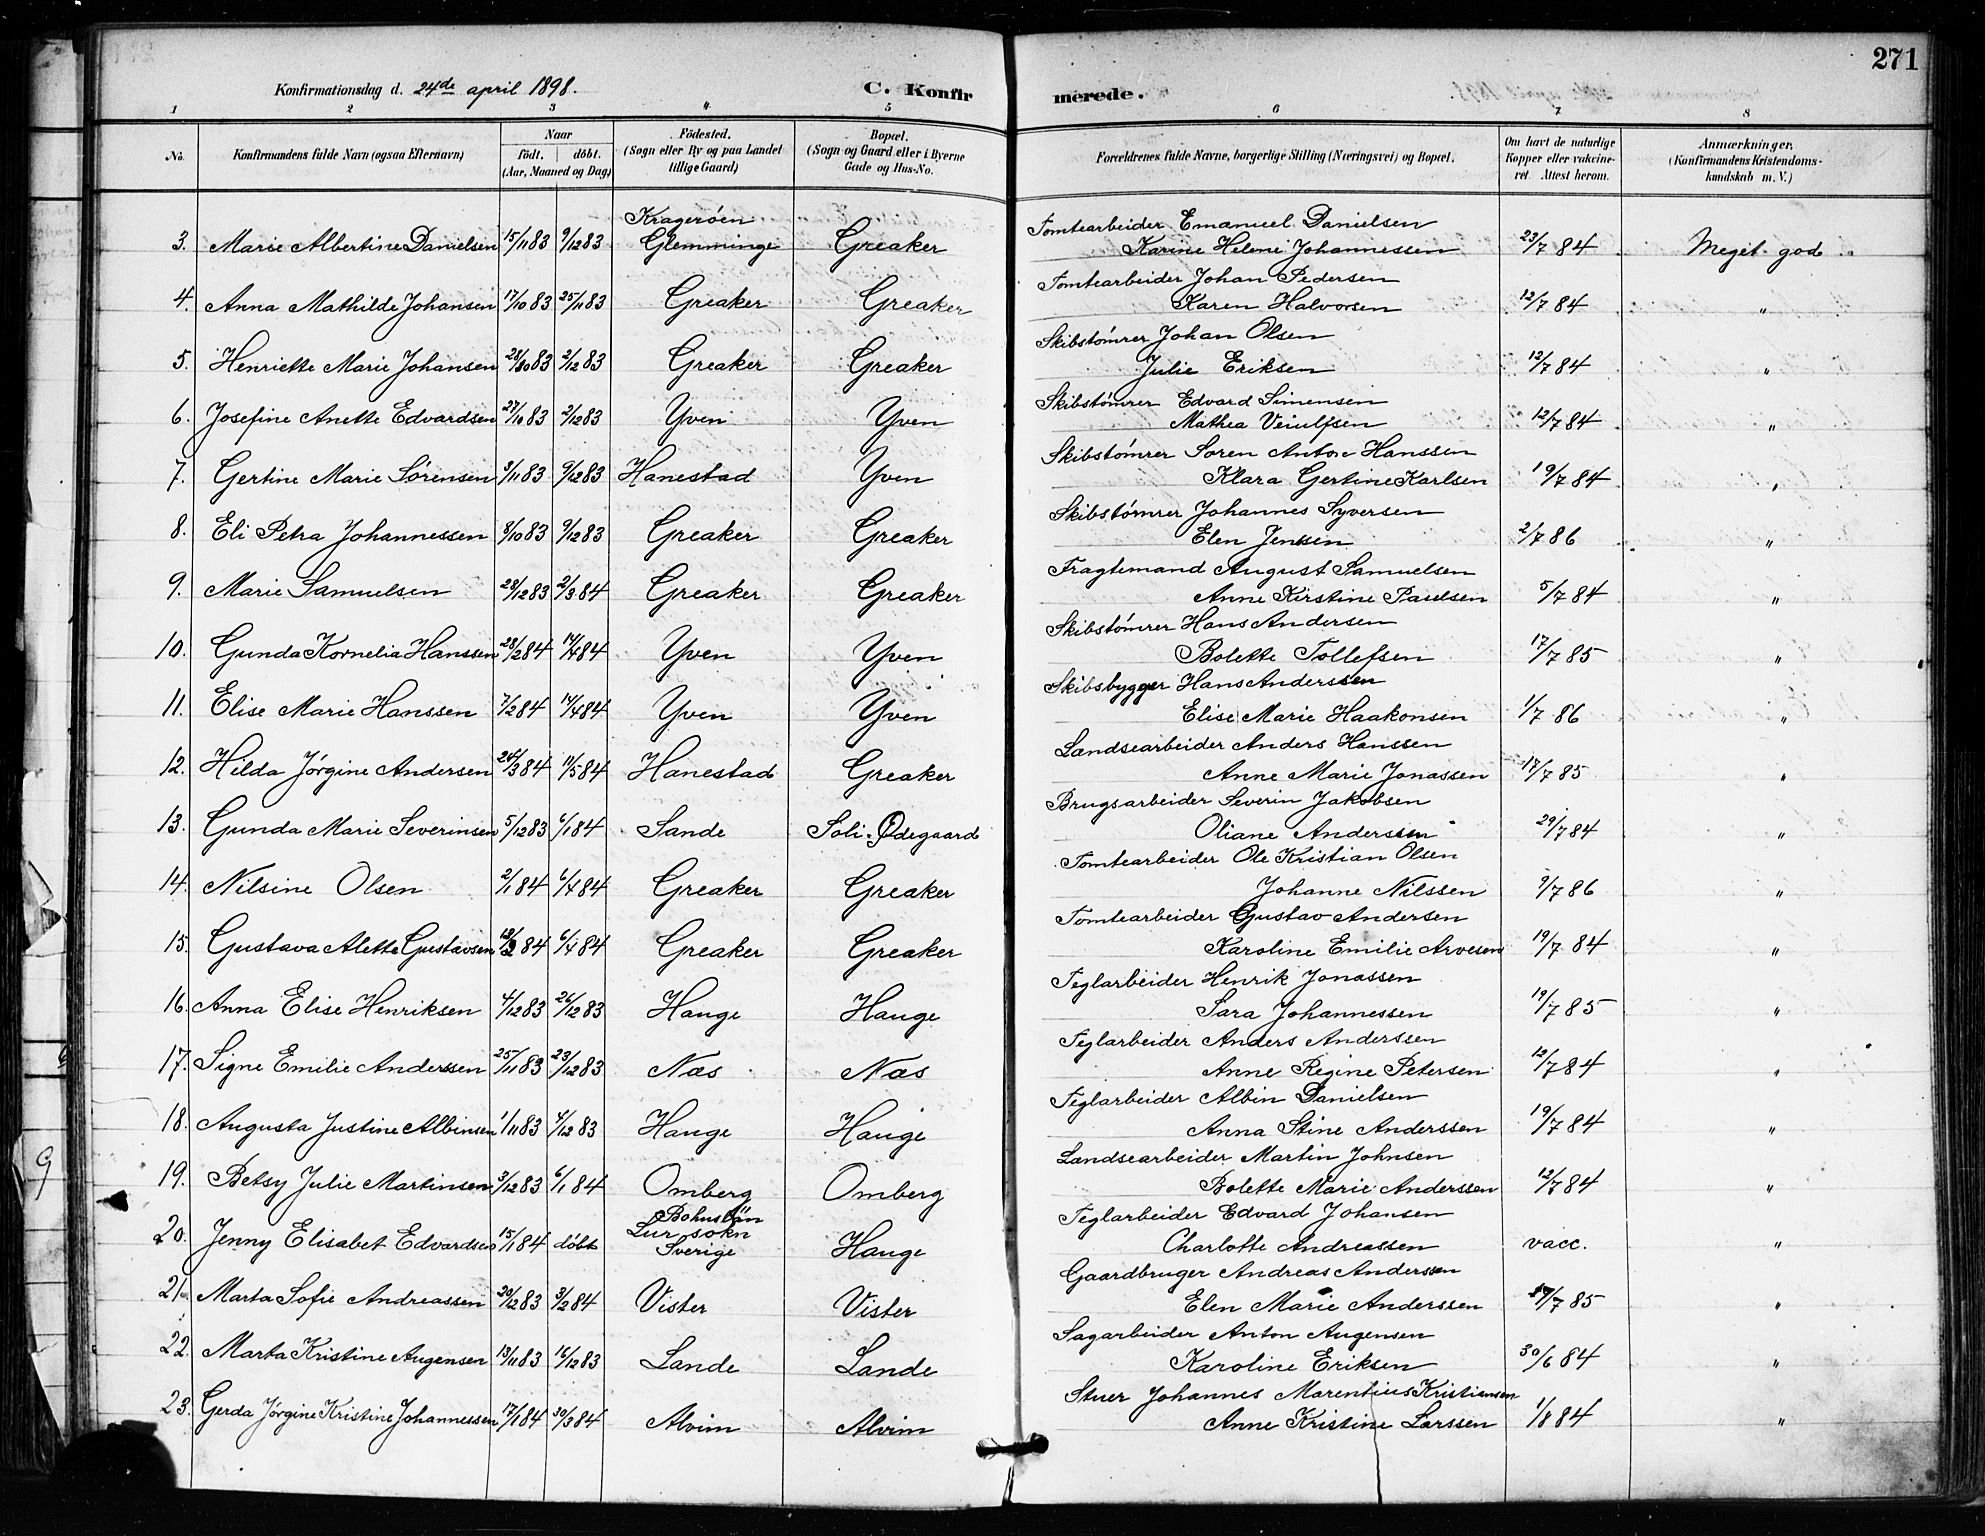 271
Konfirmationsdag d. 24de april 1898. C. Konfirmerede.
1 2 3 4 5 6 7 8
No. Konfirmandens fulde Navn (ogsaa Efternavn) Naar födt. döbt. (Aar, Maaned og Dag) Födested. (Sogn eller By og paa Landet tillige Gaard) Bopæl. (Sogn og Gaard eller i Byerne Gade og Hus-No. Forældrenes fulde Navne, borgerlige Stilling (Næringsvei) og Bopæl. Om havt de naturlige Kopper eller vakcineret. Attest herom. Anmærkninger, (Konfirmandens Kristendomskundskab m. V.)
Kragerøen Tomtearbeider Emanuel Danielsen
3. Marie Albertine Danielsen 15/11 83 9/12 83 Glemminge Greaker Karine Helene Johannessen 23/7 84 Meget god
Tomtearbeider Johan Pedersen
4. Anna Mathilde Johansen 17/10 83 25/11 83 Greaker Greaker Karen Halvorsen 12/7 84 "
Skibstømrer Johan Olsen
5. Henriette Marie Johansen 28/10 83 2/12 83 Greaker Greaker Julie Eriksen 12/7 84 "
Skibstømrer Edvard Simensen
6. Josefine Anette Edvardsen 27/10 83 2/12 83 Yven Yven Mathea Veiulfsen 12/7 84 "
Skibstømrer Soren Anton Hanssen
7. Gertine Marie Sørensen 9/11 83 9/12 83 Hanestad Yven Klara Gertine Karlsen 19/7 84 "
Skibstømrer Johannes Syversen
8. Eli Petra Johannessen 8/10 83 9/12 83 Greaker Greaker Elen Jensen 2/7 86 "
Fragtemand August Samuelsen
9. Marie Samuelsen 28/12 83 2/3 84 Greaker Greaker Anne Kirstine Paulsen 5/7 84 "
Skibstømrer Hans Andersen
10. Gunda Kornelia Hanssen 28/2 84 14/4 84 Yven Yven Bolette Tollefsen 17/7 85 "
Skibsbygger Hans Anderssen
11. Elise Marie Hanssen 7/2 84 14/4 84 Yven Yven Elise Marie Haakonsen 1/7 86 "
Landsearbeider Anders Hanssen
12. Hilda Jørgine Andersen 24/3 84 11/5 84 Hanestad Greaker Anne Marie Jonassen 17/7 85 "
Brugsarbeider Severin Jakobsen
13. Gunda Marie Severinsen 5/12 83 6/1 84 Sande Soli-Ødegaard Oliane Anderssen 29/7 84 "
Tomtearbeider Ole Kristian Olsen
14. Nilsine Olsen 2/1 84 6/4 84 Greaker Greaker Johanne Nilssen 9/7 86 "
Tomtearbeider Gustav Andersen
15. Gustava Alette Gustavsen 84 6/4 84 Greaker Greaker Karoline Emilie Arvesen 19/7 84 "
Teglarbeider Henrik Jonassen
16. Anna Elise Henriksen 4/12 83 26/12 83 Hauge Hauge Sara Johannessen 19/7 85 "
Teglarbeider Anders Anderssen
17. Signe Emilie Anderssen 25/11 83 23/12 83 Næs Næs Anne Regine Petersen 12/7 84 "
Teglarbeider Albin Danielsen
18. Augusta Justine Albinsen 1/11 83 4/12 83 Hauge Hauge Anna Stine Anderssen 19/7 84 "
Landsearbeider Martin Johnsen
19. Betsy Julie Martinsen 3/12 83 6/1 84 Omberg Omberg Bolette Marie Anderssen 12/7 84 "
Bohuslän Teglarbeider Edvard Johansen
20. Jenny Elisabet Edvardsen 15/1 84 døbt Lur sokn Sverige Hauge Charlotte Andreassen vacc. "
Gaardbruger Andreas Anderssen
21. Marta Sofie Andreassen 20/12 83 3/2 84 Vister Vister Elen Marie Anderssen 7 85 "
Sagarbeider Anton Augensen
22. Marta Kristine Augensen 13/11 83 16/12 83 Sande Sande Karoline Eriksen 30/6 84 "
Stuer Johannes Marentius Kristiansen
23. Gerda Jørgine Kristine Johannessen 17/1 84 30/3 84 Alvim Alvim Anne Kristine Larssen 1/8 84 "